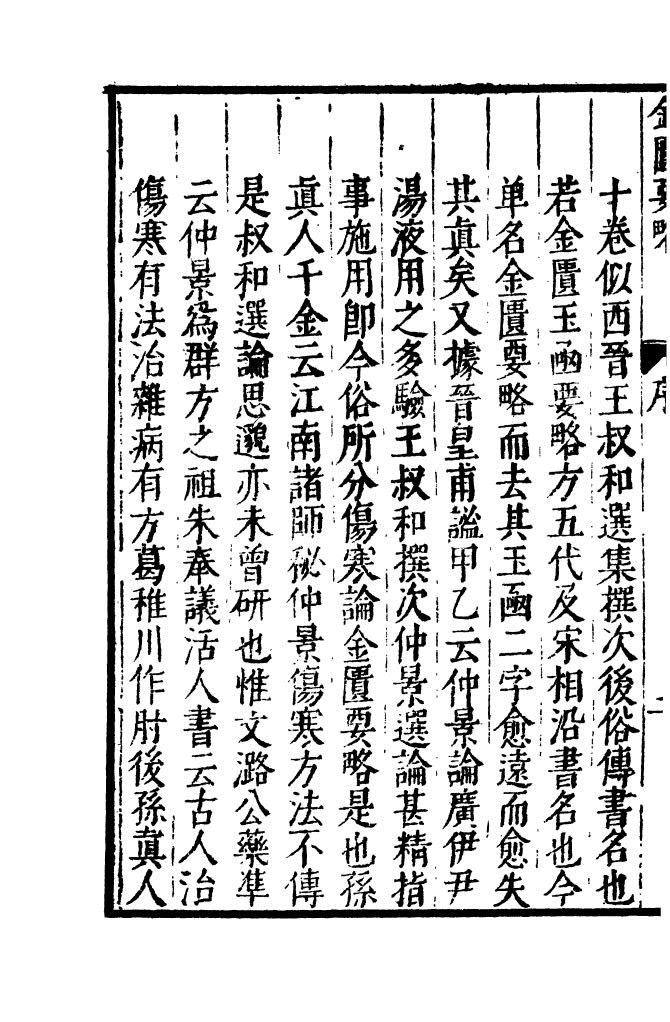 金匱要略 序 二
十卷似西晉王叔和選集撰次後俗傳書名也
若金匱玉函要略方五代及宋相沿書名也今
单名金匱要略而去其玉函二字愈遠而愈失
其眞矣又據晉皇甫謐甲乙云仲景論廣伊尹
湯液用之多驗王叔和撰次仲景選論甚精指
事施用卽今俗所分傷寒論金匱要略是也孫
眞人千金云江南諸師秘仲景傷寒方法不傳
是叔和選論思邈亦未曾研也惟文潞公藥凖
云仲景爲群方之祖朱奉議活人書云古人治
傷寒有法治雜病有方葛稚川作肘後孫眞人